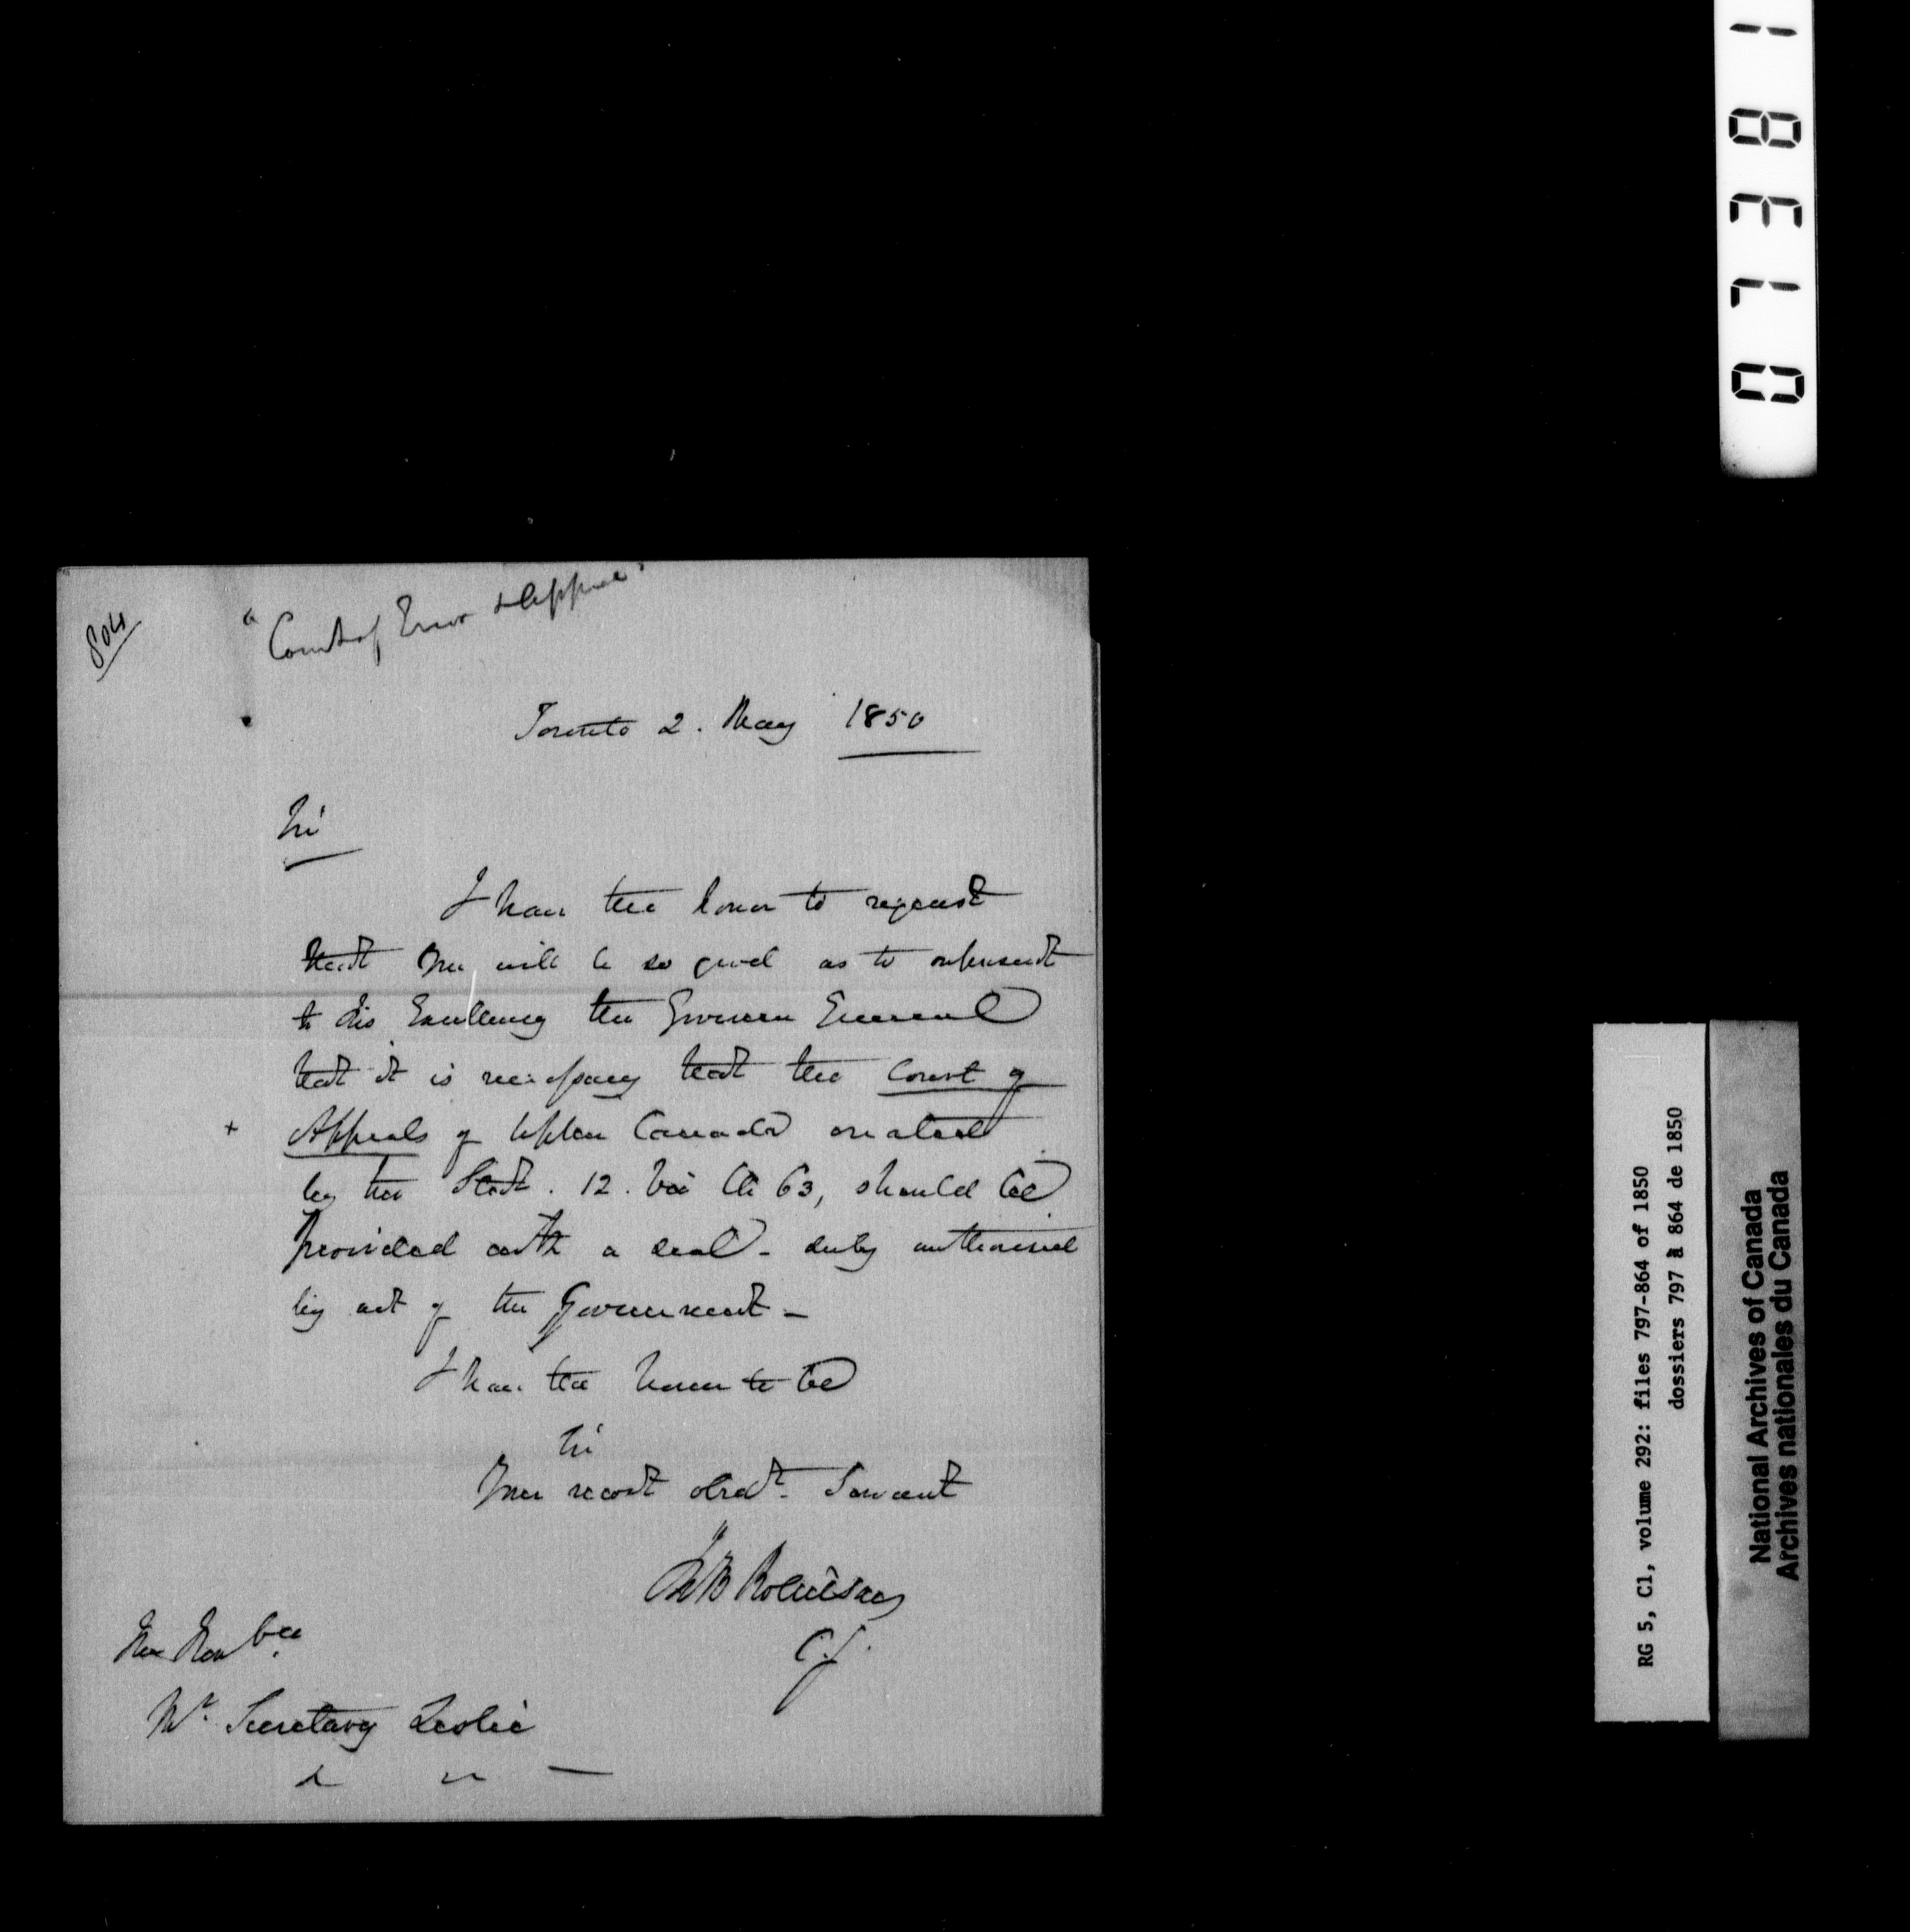 804
"Court of Error & Appeal"
Toronto 2. May 1850
Sir
I have the honor to request
that you will be so good as to represent
to His Excellency the Governor General
that it is necessary that the Court of
+ Appeals of Upper Canada created
by the Stat. 12. Vic Ch 63, should be
provided with a seal - duly authorised
by act of the Government -
I have the honor to be
Sir
Your most obedt. Servant
Jno B Robinson
C.J.
The Honble.
Mr. Secretary Leslie
01381
RG 5, C1, volume 292: files 797-864 of 1850
dossiers 797 à 864 de 1850
National Archives of Canada
Archives nationales du Canada